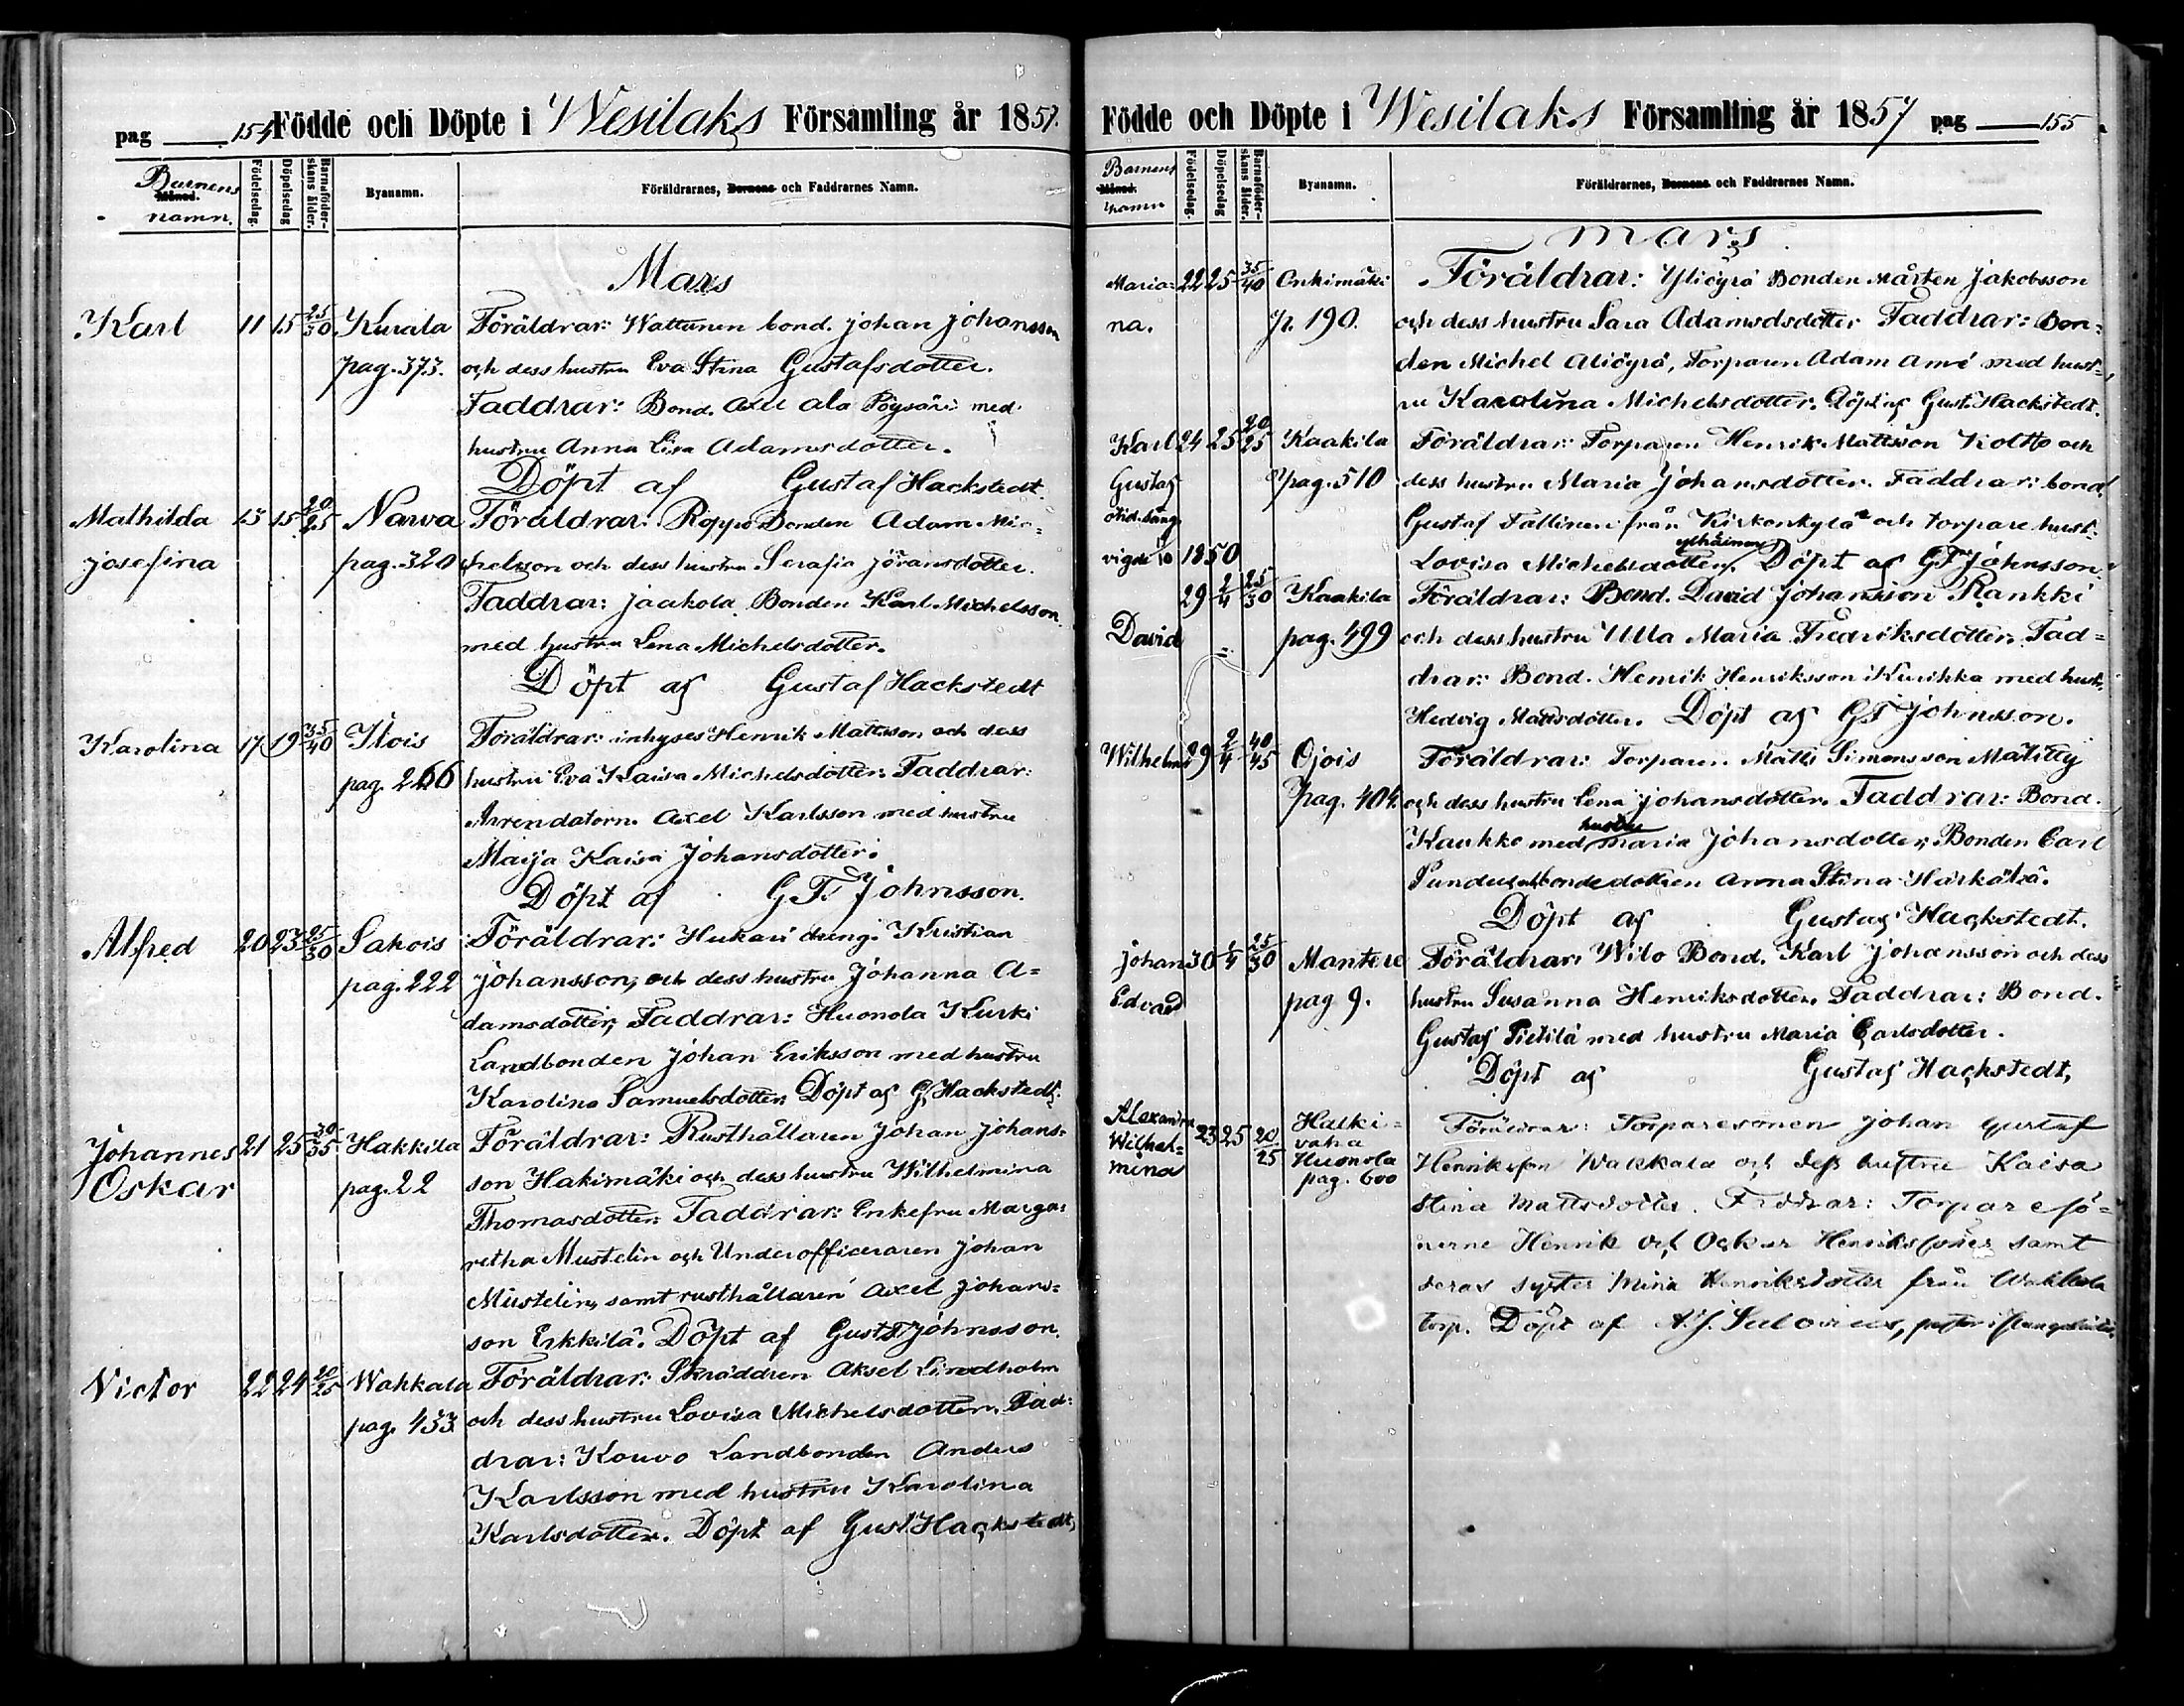 pag 154 Födde och Döpte i Wesilaks Församling år 1857.
Barnens namn. Månad. Födelsedag. Döpelsedag Barnaföderskans ålder. Byanamn. Föräldrarnes, Barnens och Faddrarnes Namn.
Mars
Karl 11 15 25/30 Kurala Föräldrar: Wattunen bond. Johan Johansson
pag. 373. och dess hustru Eva Stina Gustafsdotter.
Faddrar: Bond. Axel ala Pöysäri med
hustru Anna Lisa Adamsdotter.
Döpt af Gustaf Hackstedt.
Mathilda 13 15 20/25 Narva Föräldrar: Roppo Bonden Adam Mic=
Josefina pag. 320 helsson och dess hustru Serafia Jöransdotter.
Faddrar: Jaakola Bonden Karl Michelsson
med hustru Lena Michelsdotter.
Döpt af Gustaf Hackstedt
Karolina 17 19 35/40 Ilois Föräldrar: inhyses Henrik Mattsson och dess
pag. 266 hustru Eva Kaisa Michelsdotter. Faddrar:
Arrendatorn Axel Karlsson med hustru
Maija Kaisa Johansdotter.
Döpt af G F Johnsson.
Alfred 20 23 25/30 Sakois Föräldrar: Hukari dreng. Kristian
pag. 222 Johansson, och dess hustru Johanna A=
damsdotter, Faddrar: Huonola Kurki
Landbonden Johan Eriksson med hustru
Karolina Samuelsdotter. Döpt af G Hackstedt.
Johannes 21 25 30/35 Hakkila Föräldrar: Rusthållaren Johan Johans=
Oskar pag. 22 son Hakimäki och dess hustru Wilhelmina
Thomasdotter. Faddrar: Enkefru Marga=
retha Mustelin och Underofficeraren Johan
Mustelin, samt rusthållaren Axel Johans=
son Erkkilä. Döpt af Gust F Johnsson.
Victor 22 24 20/25 Wakkala Föräldrar: Skräddren Aksel Lindholm
pag. 433 och dess hustru Lovisa Michelsdotter. Fad=
drar: Kouvo Landbonden Anders
Karlsson med hustru Karolina
Karlsdotter. Döpt af Gust Hackstedt,
Födde och Döpte i Wesilaks Församling år 1857 pag 155
Barnens namn Månad. Födelsedag. Döpelsedag Barnaföderskans ålder. Byanamn. Föräldrarnes, Barnens och Faddrarnes Namn.
Mars
Maria= 22 25 35/40 Onkimäki Föräldrar: Yliöyrä Bonden Mårten Jakobsson
na. p. 190. och dess hustru Sara Adamsdsdotter Faddrar: Bon=
den Michel Aliöyrä, Torparen Adam med hust=
ru Karolina Michelsdotter. Döpt af Gust. Hackstedt.
Karl 24 25 20/25 Kaakila Föräldrar: Torparen Henrik Mattsson Koltto och
Gustaf pag. 510 dess hustru Maria Johansdotter. Faddrar: bond.
Gustaf Fallinen från Kirkonkylä och torpare hust.
vigde 1850 Lovisa Michelsdotter Döpt af G F Johnsson.
29 2/4 25/30 Kaakila Föräldrar: Bond. David Johansson Rankki
David pag. 499 och dess hustru Ulla Maria Fredriksdotter. Fad=
drar: Bond. Henrik Henriksson Kurikka med hust.
Hedvig Mattsdotter. Döpt af G F Johnsson.
Wilhelm 29 2/4 40/45 Ojois Föräldrar: Torparen Matts Simonsson Mätitty
pag. 404. och dess hustru Lena Johansdotter. Faddrar: Bond.
Kaukko med hustru Maria Johansdotter, Bonden Carl
bondedottren Anna Stina Härkälä.
Döpt af Gustaf Hackstedt.
Johan 30 25/30 Mantere Föräldrar: Wilo Bond. Karl Johansson och dess
Edvard pag 9. hustru Susanna Henriksdotter. Faddrar: Bond.
Gustaf Pietilä med hustru Maria Carlsdotter.
Döpt af Gustaf Hackstedt,
Alexandra 23 25 20/25 Halki= Föräldrar: Torparesonen Johan Gustaf
Wilhel= vaha Henriksson Wakkala och dess hustru Kaisa
mina Huonola Stina Mattsdotter. Faddrar: Torparesö=
pag. 600 nerne Henrik och Oskar Henrikssöner samt
deras syster Mina Henriksdotter från Wakkala
torp. Döpt af